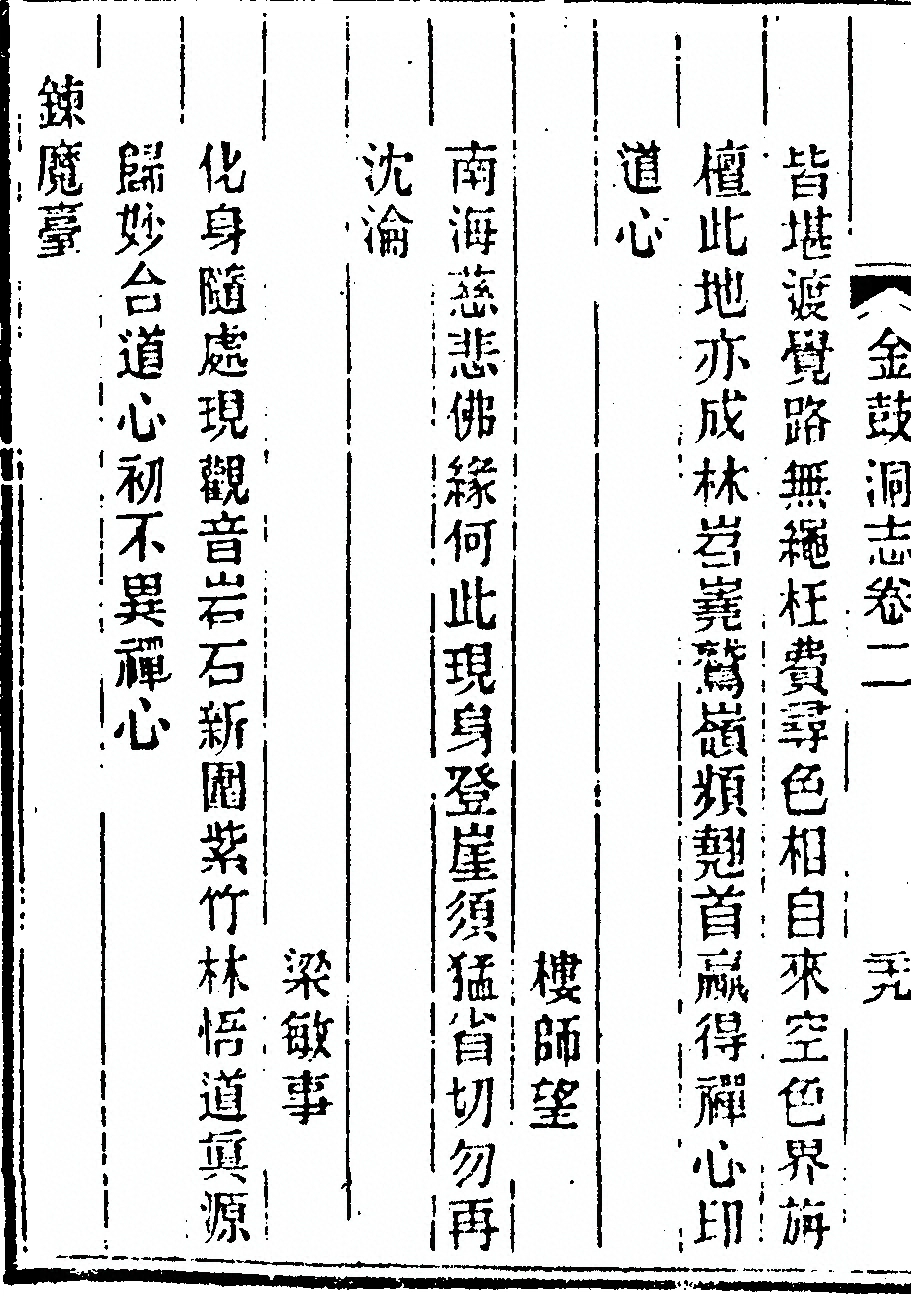 金鼓洞志卷二
皆堪渡覺路無繩枉費尋色相自來空色界旃
檀此地亦成林岧嶤鷲嶺頻翹首贏得禪心印
道心
樓師望
南海慈悲佛緣何此現身登崖須猛省切勿再
沈淪
梁敏事
化身隨處現觀音岩石新圍紫竹林悟道眞源
歸妙合道心初不異禪心
鍊魔臺